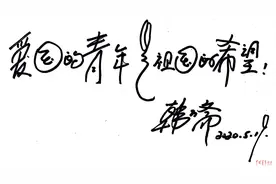 爱国的青年是祖国的希望!
韩常
2020.5.19.